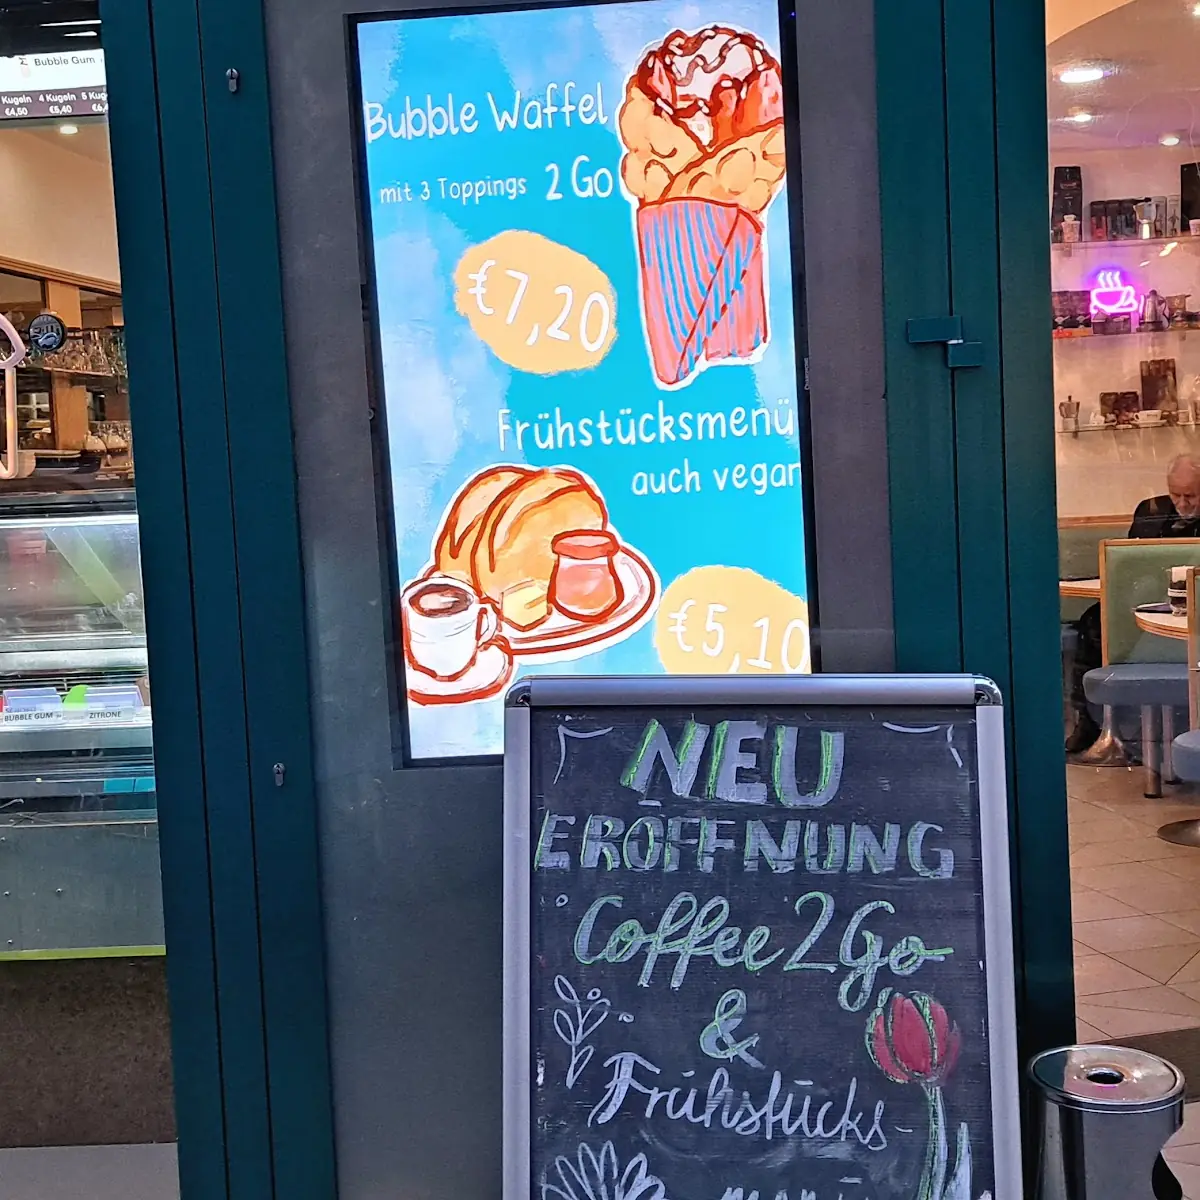 Bubble Gum
Kugeln 4 Kugeln 5 Kug
€4,50 €5,40
Bubble Waffel
mit 3 Toppings 2 Go
€7,20
Frühstücksmenü
auch vegan
€5,10
BUBBLE GUM
ZITRONE
NEU
ERÖFFNUNG
Coffee 2 Go
&
Frühstücks-